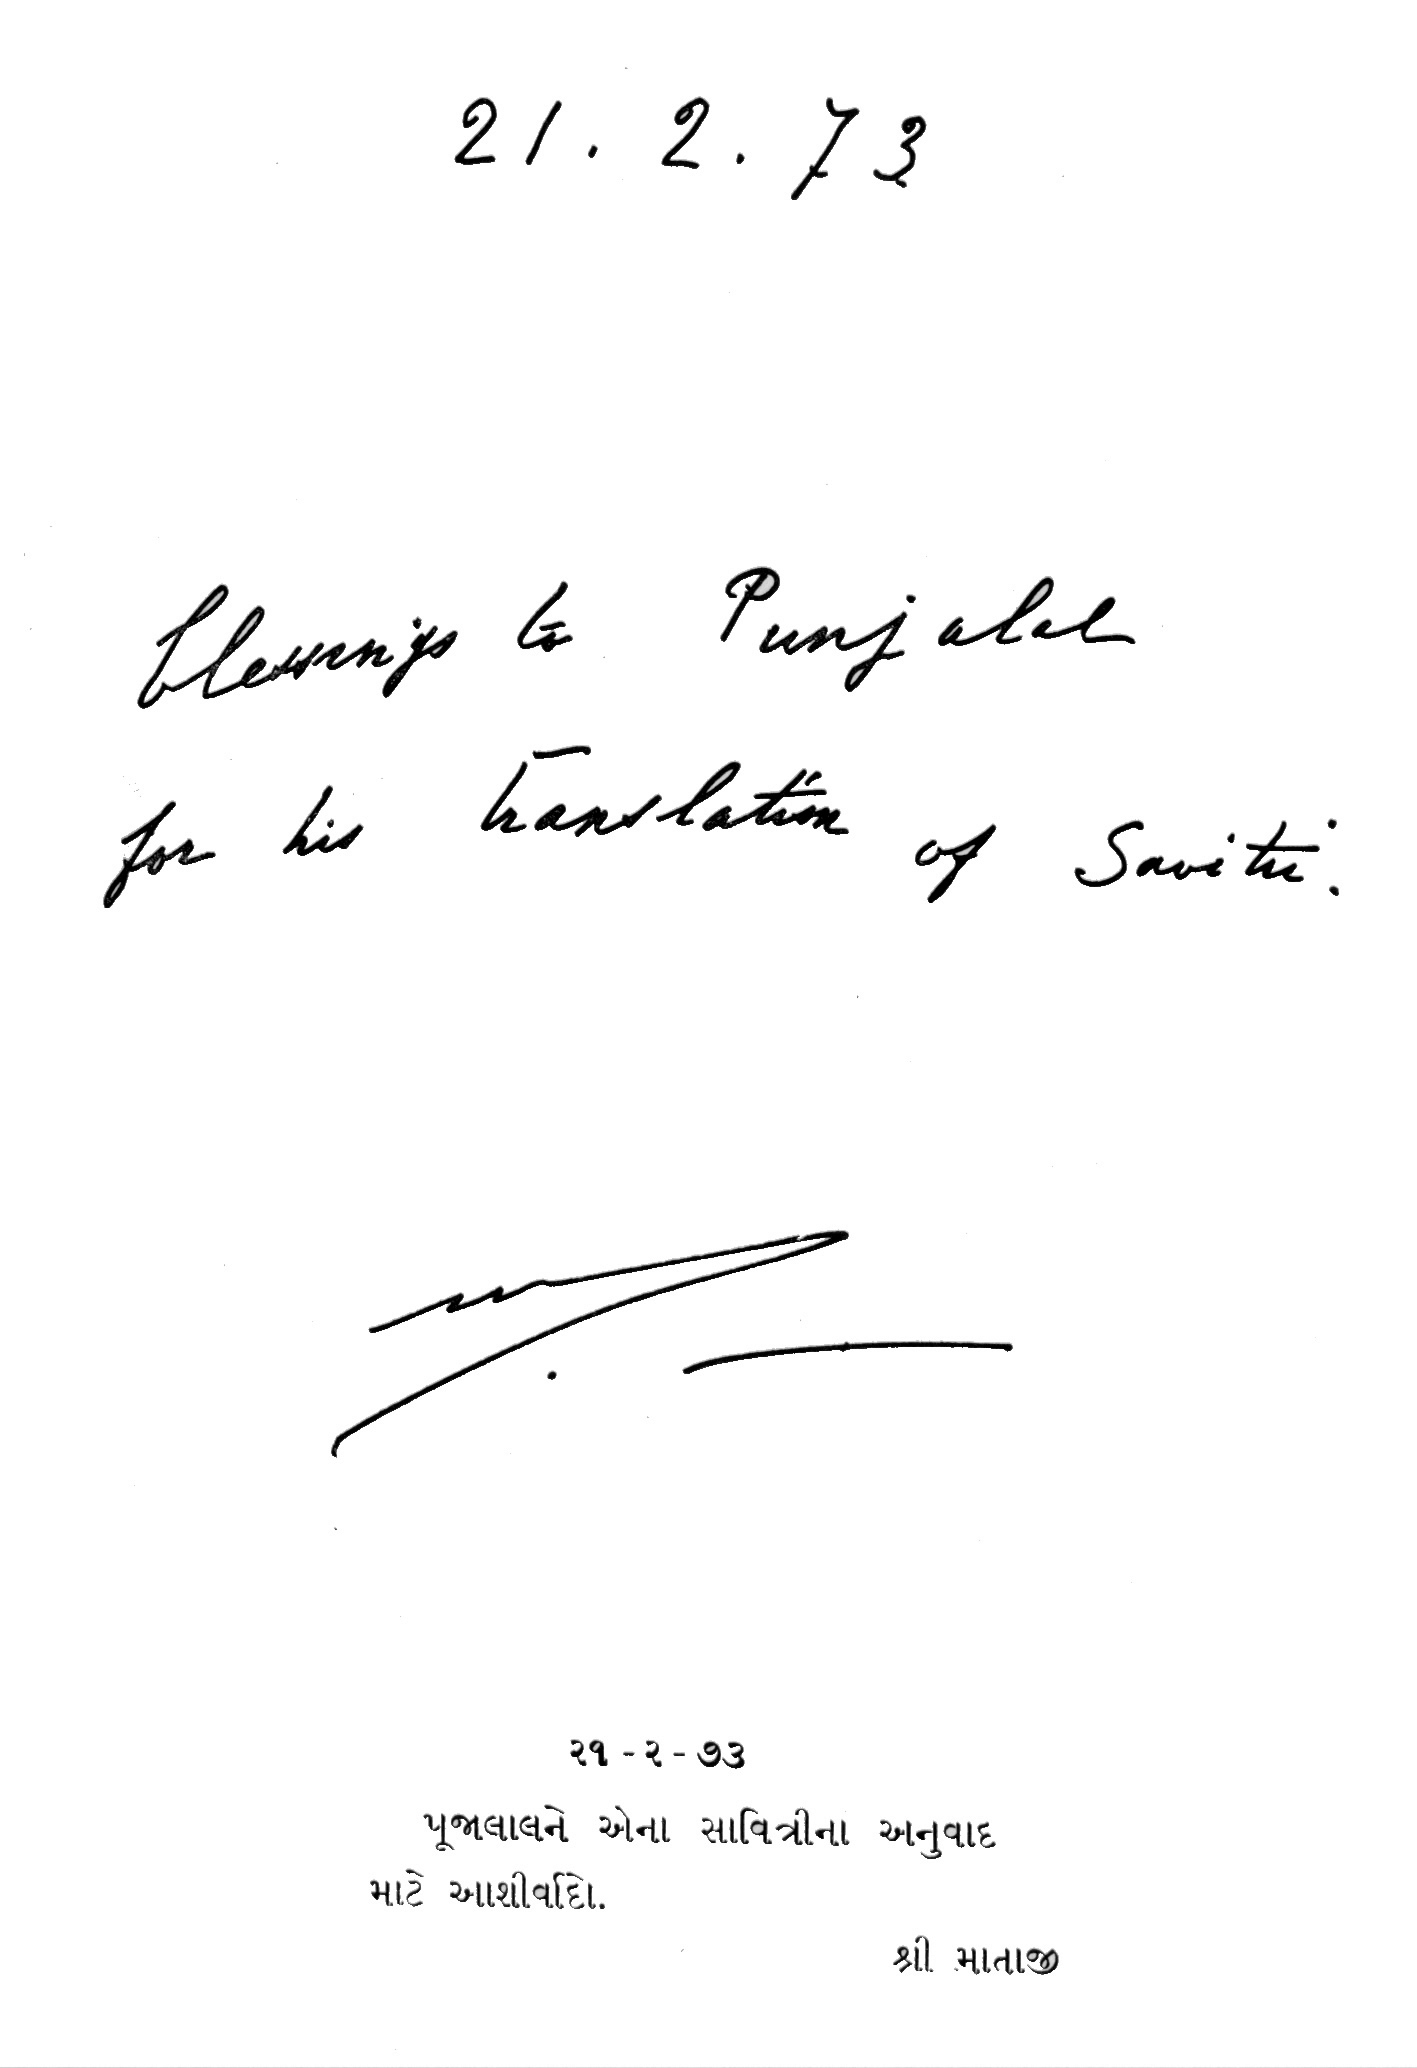 21.2.73
blessings to Punjalal
for his translation of Savitri.
૨૧-૨-૭૩
પૂજાલાલને એના સાવિત્રીના અનુવાદ
માટે આશીર્વાદો.
શ્રી માતાજી